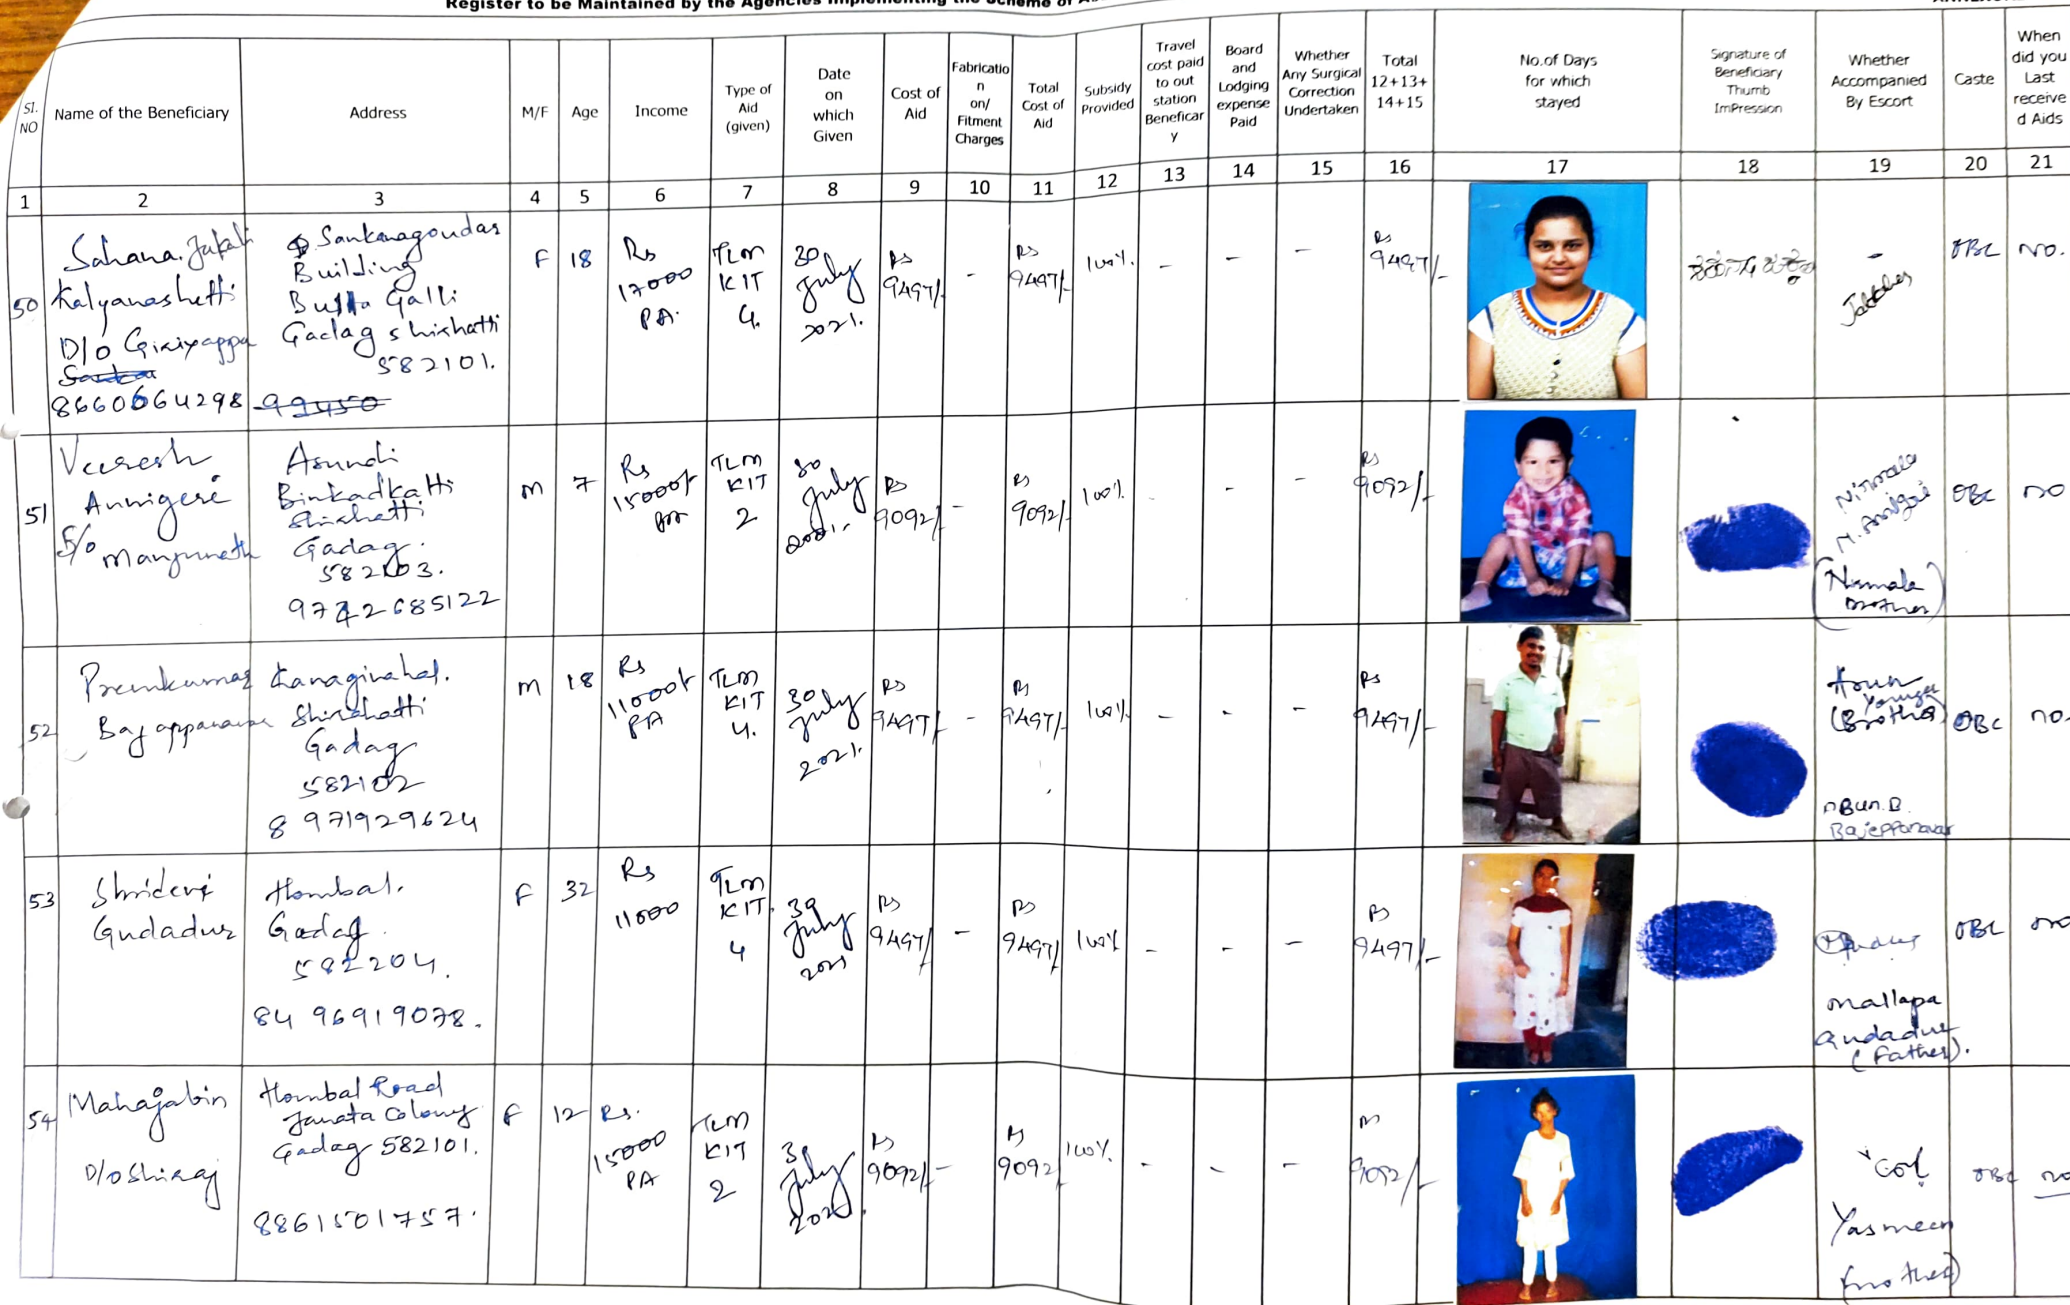 Register to be Maintained by the Agencies Implementing the Scheme of
Sl. NO
Name of the Beneficiary
Address
M/F
Age
Income
Type of Aid (given)
Date on which Given
Cost of Aid
Fabricatio n on/ Fitment Charges
Total Cost of Aid
Subsidy Provided
Travel cost paid to out station Beneficar y
Board and Lodging expense Paid
Whether Any Surgical Correction Undertaken
Total 12+13+ 14+15
No.of Days for which stayed
Signature of Beneficiary Thumb ImPression
Whether Accompanied By Escort
Caste
When did you Last receive d Aids
1 2 3 4 5 6 7 8 9 10 11 12 13 14 15 16 17 18 19 20 21
50
Sahana. Jakali
Kalyanashetti
D/o Girixappa
8660664298
Sankanagoudar
Building
Galli
Gadag Shirhatti
582101.
F
18
Rs
17000
PA.
TLM
KIT
4.
30
July
2021.
Rs
9497/-
-
Rs
9497/-
100%.
-
-
-
Rs
9497/-
-
OBC
NO.
51
Veeresh
Annigeri
S/o
Manjunath
Asundi
Binkadkatti
Shirhatti
Gadag.
582103.
9742685122
M
7
Rs
15000/-
PA
TLM
KIT
2
30
July
2021.
Rs
9092/-
-
Rs
9092/-
100%
-
-
Rs
9092/-
Nirmala
M. Annigeri
(Nirmala
Mother)
OBC
NO
52
Premkumar
Bajappanavar
Kanaginahal.
Shirahatti
Gadag
582102
8971929624
M
18
Rs
11000/-
PA
TLM
KIT
4.
30
July
2021.
Rs
9497/-
-
Rs
9497/-
100%
-
-
-
Rs
9497/-
Arun
Younger
(Brother)
Bajeppanavar
OBC
NO.
53
Shridevi
Gudadur
Hombal.
Gadag.
582204.
8496919078.
F
32
Rs
11000
TLM
KIT.
4
30
July
2021
Rs
9497/-
-
Rs
9497/-
100%
-
-
-
Rs
9497/-
Mallapa
Gudadur
(Father).
OBC
NO
54
Mahajabin
D/o Shiraj
Hombal Road
Janata Colony
Gadag 582101.
8861501757.
F
12
Rs.
15000
PA
TLM
KIT
2
30
July
2021.
Rs
9092/-
-
Rs
9092
100%.
-
-
-
Rs
9092/-
Yasmeen
(mother)
OBC
NO